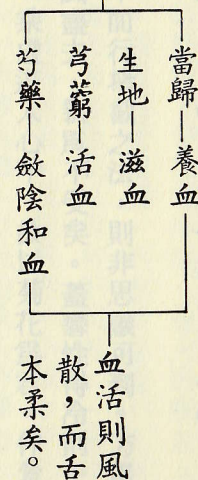 當歸—養血
生地—滋血
芎藭—活血
芍藥—斂陰和血
血活則風
散，而舌
本柔矣。